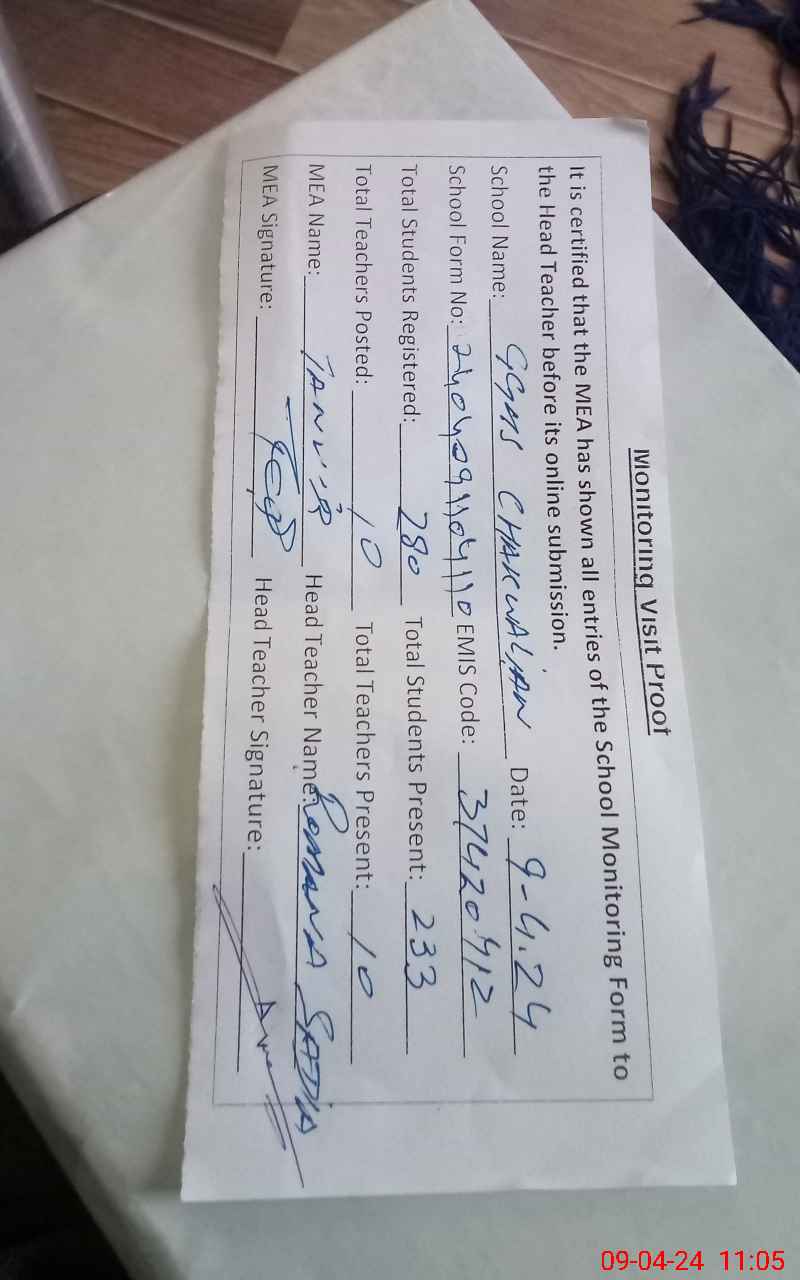 Monitoring Visit Proof
It is certified that the MEA has shown all entries of the School Monitoring Form to
the Head Teacher before its online submission.
School Name: GGHS CHAKWALIAN Date: 9-4.24
School Form No: EMIS Code: 37420412
Total Students Registered: 280 Total Students Present: 233
Total Teachers Posted: 10 Total Teachers Present: 10
MEA Name: TANVIR Head Teacher Name: ROMANA SADIA
MEA Signature: Head Teacher Signature:
09-04-24 11:05